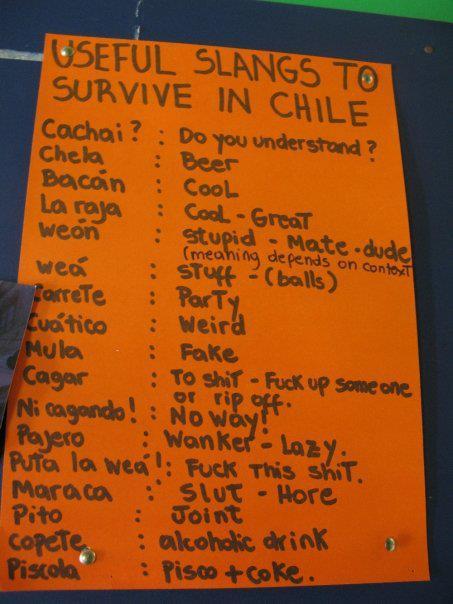 USEFUL SLANGS TO
SURVIVE IN CHILE
Cachai? : Do you understand?
Chela : Beer
Bacán : Cool
La raja : Cool - Great
weón : stupid - Mate - dude
(meaning depends on context
weá : stuff - (balls)
Carrete : Party
Cuático : Weird
Mula : Fake
Cagar : To shit - Fuck up someone
or rip off.
Ni cagando! : No way!
Pajero : Wanker - Lazy.
Puta la weá! : Fuck this shit.
Maraca : Slut - Hore
Pito : Joint
copete : alcoholic drink
Piscola : Pisco + coke.